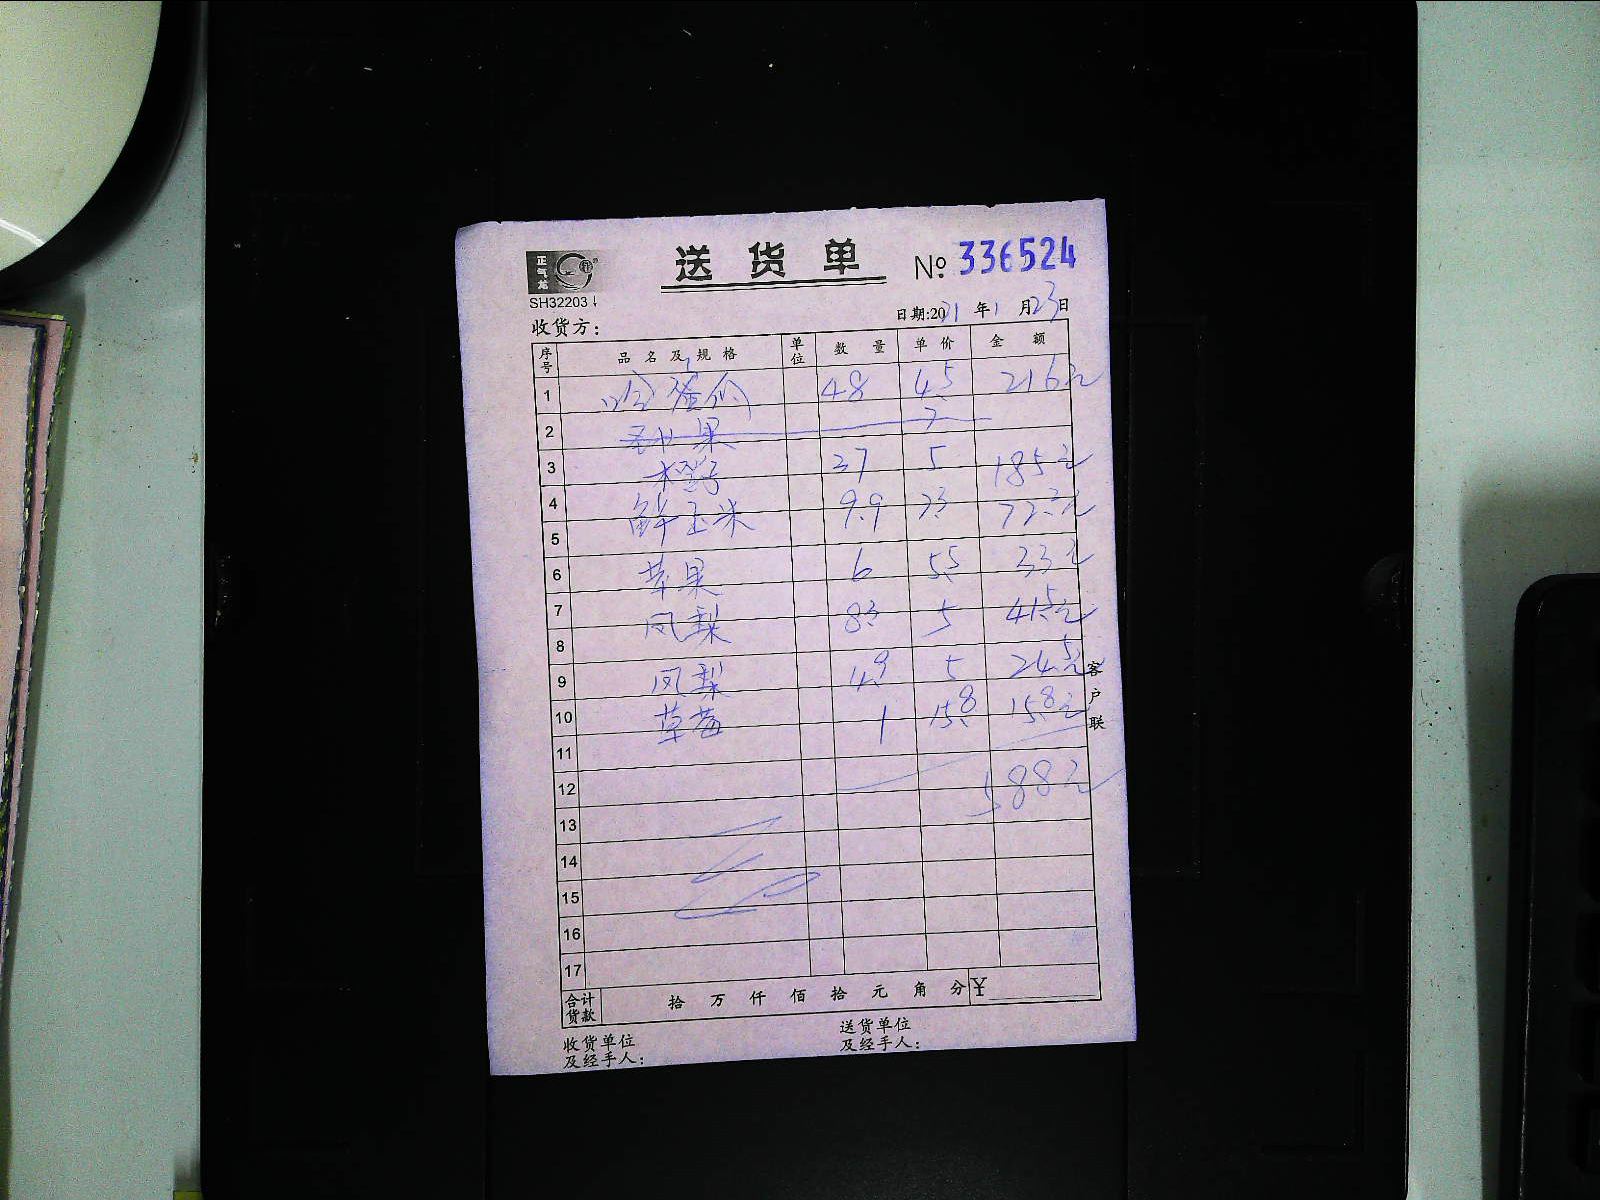 正气龙
送货单 № 336524
SH32203
日期:2021年1月23日
收货方:
序号 品名及规格 单位 数量 单价 金额
1 哈蜜瓜 48 4.5 216元
2 果 7
3 橙子 37 5 185元
4 鲜玉米 9.9 7.3 72.2元
5
6 苹果 6 5.5 33元
7 凤梨 8.3 5 41.5元
8
9 凤梨 4.9 5 24.5元
10 草莓 1 15.8 15.8元
11
12 588元
13
14
15
16
17
合计货款 拾 万 仟 佰 拾 元 角 分 ¥
收货单位及经手人:
送货单位及经手人:
客户联